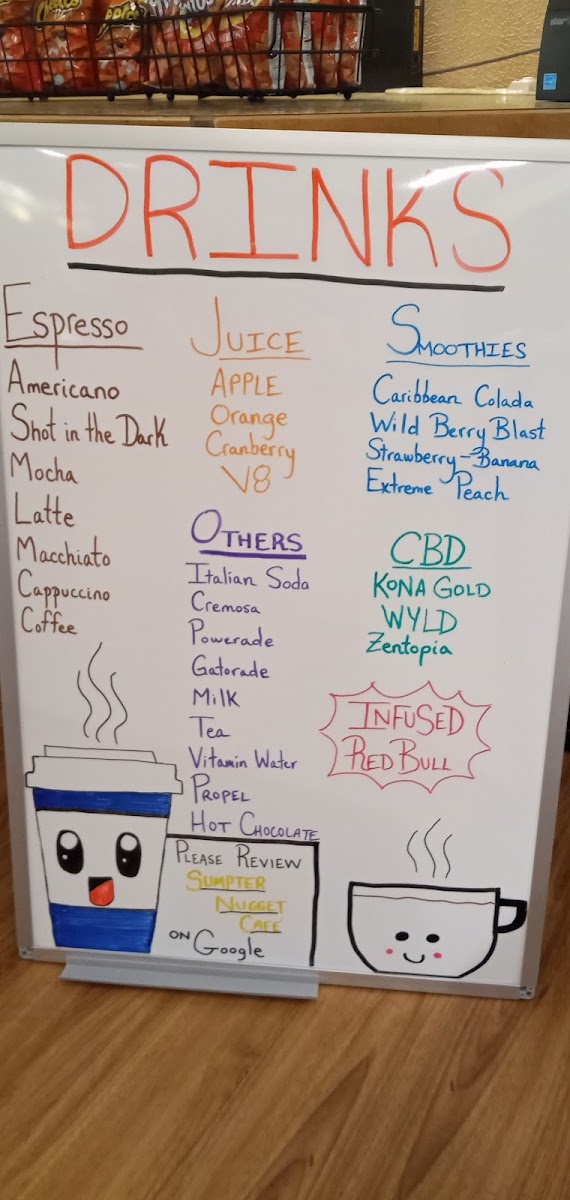 Cheetos
DRINKS
Espresso
Americano
Shot in the Dark
Mocha
Latte
Macchiato
Cappuccino
Coffee
JUICE
APPLE
Orange
Cranberry
V8
OTHERS
Italian Soda
Cremosa
Powerade
Gatorade
Milk
Tea
Vitamin Water
PROPEL
HOT CHOCOLATE
SMOOTHIES
Caribbean Colada
Wild Berry Blast
Strawberry-Banana
Extreme Peach
CBD
KONA GOLD
WYLD
Zentopia
INFUSED
RED BULL
PLEASE REVIEW
SUMPTER
NUGGET
CAFE
ON Google